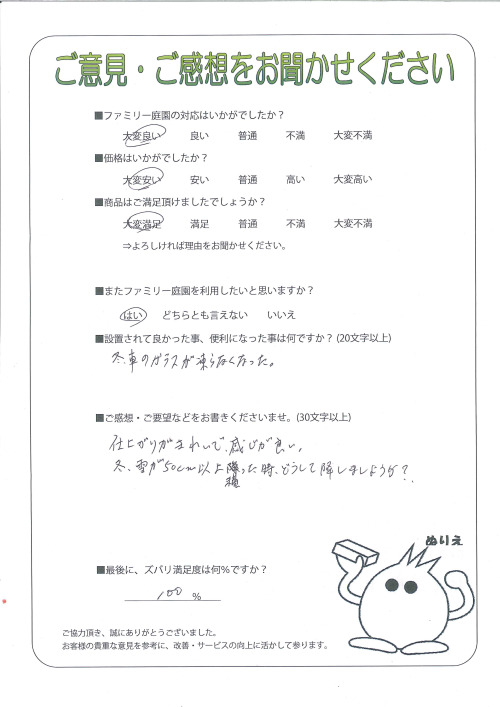 ご意見・ご感想をお聞かせください
■ファミリー庭園の対応はいかがでしたか？
大変良い 良い 普通 不満 大変不満
■価格はいかがでしたか？
大変安い 安い 普通 高い 大変高い
■商品はご満足頂けましたでしょうか？
大変満足 満足 普通 不満 大変不満
⇒よろしければ理由をお聞かせください。
■またファミリー庭園を利用したいと思いますか？
はい どちらとも言えない いいえ
■設置されて良かった事、便利になった事は何ですか？(20文字以上)
冬、車のガラスが凍らなくなった。
■ご感想・ご要望などをお書きくださいませ。(30文字以上)
仕上がりがきれいで、感じが良い。
冬、雪が50cm以上った時、どうして降しましょうか？
積
ぬりえ
■最後に、ズバリ満足度は何％ですか？
100 ％
ご協力頂き、誠にありがとうございました。
お客様の貴重な意見を参考に、改善・サービスの向上に活かして参ります。